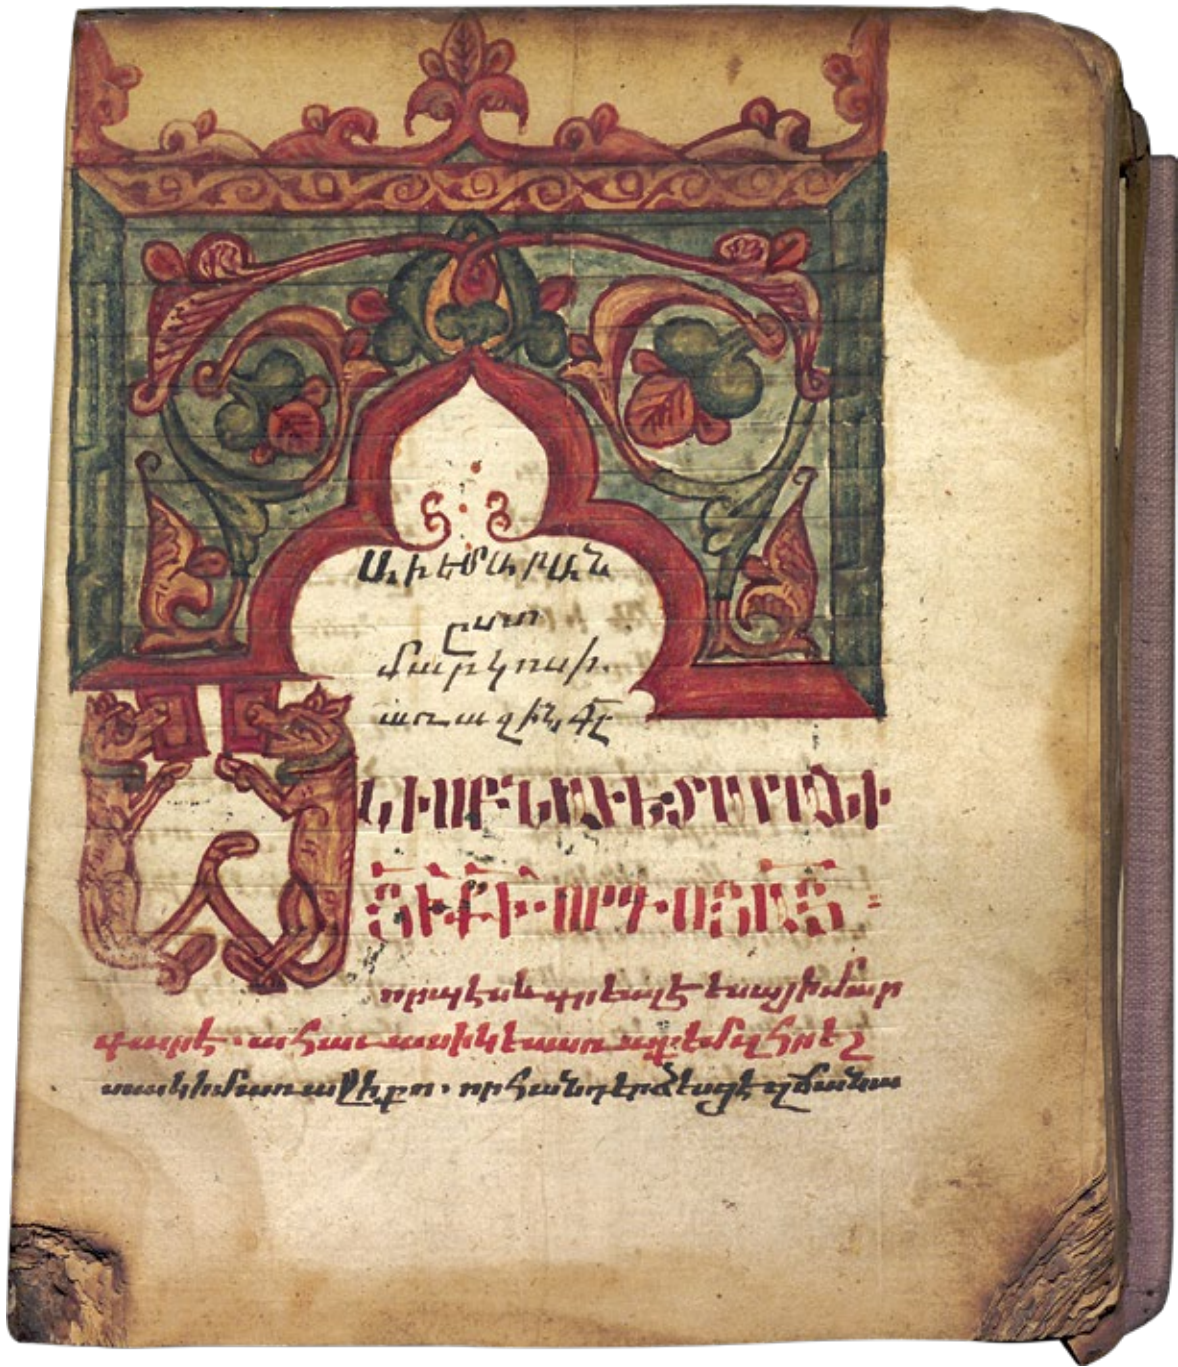 ԱՒԵՏԱՐԱՆ
ըստ
մարկոսի.
առաջին գլ
ՍԿԻԶԲՆ ԱՒԵՏԱՐԱՆԻ
ՅԻ ՔԻ· ՈՐԴՒՈՅ ԱՅ ։
որպէս և գրեալ է եսայի մար
գարէ. ահաւասիկ ես առաքեմ զհրեշ
տակ իմ առաջի քո. որ հանդերձեսցէ զճանա